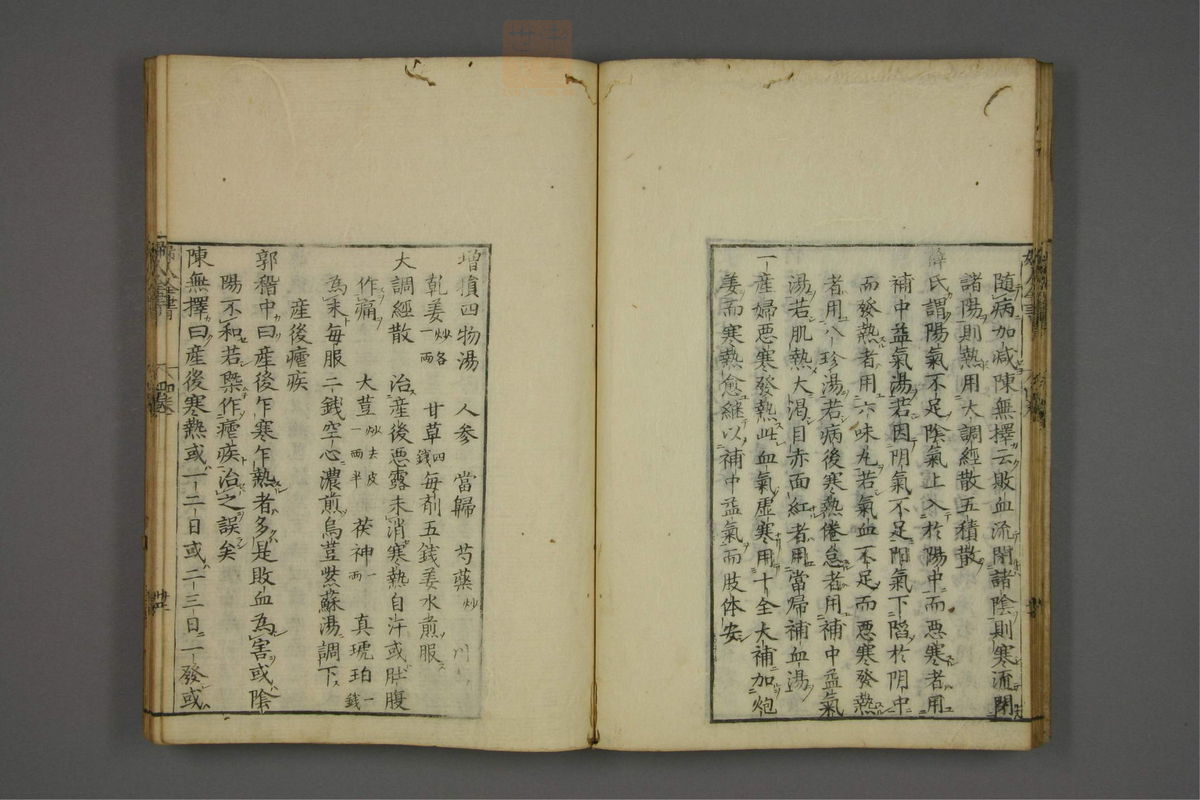 随病加减陳無擇云敗血流閉諸陰則寒流閉
諸陽則熱用大調經散五積散
薛氏謂陽氣不足陰氣上入於陽中而悪寒者用
補中益氣湯若因阴氣不足阳氣下陷於阴中
而發熱者用六味丸若氣血不足而悪寒發熱
者用八珍湯若病後寒熱倦怠者用補中益氣
湯若肌熱大渴目赤面紅者用當帰補血湯
一産婦悪寒發熱此血氣虚寒用十全大補加炮
姜而寒熱愈継以補中益氣而肢体安
增損四物湯 人参 當歸 芍藥炒 川
乾姜炒各一两 甘草四錢 每剤五錢姜水煎服
大調經散 治産後悪露未消寒熱自汗或肚腹
作痛 大荳炒去皮一两半 茯神一两 真琥珀一錢
為末每服二錢空心濃煎烏荳紫蘇湯調下
産後瘧疾
郭稽中曰産後乍寒乍熱者多是敗血為害或陰
陽不和若槩作瘧疾治之誤矣
陳無擇曰産後寒熱或一二日或二三日一發或